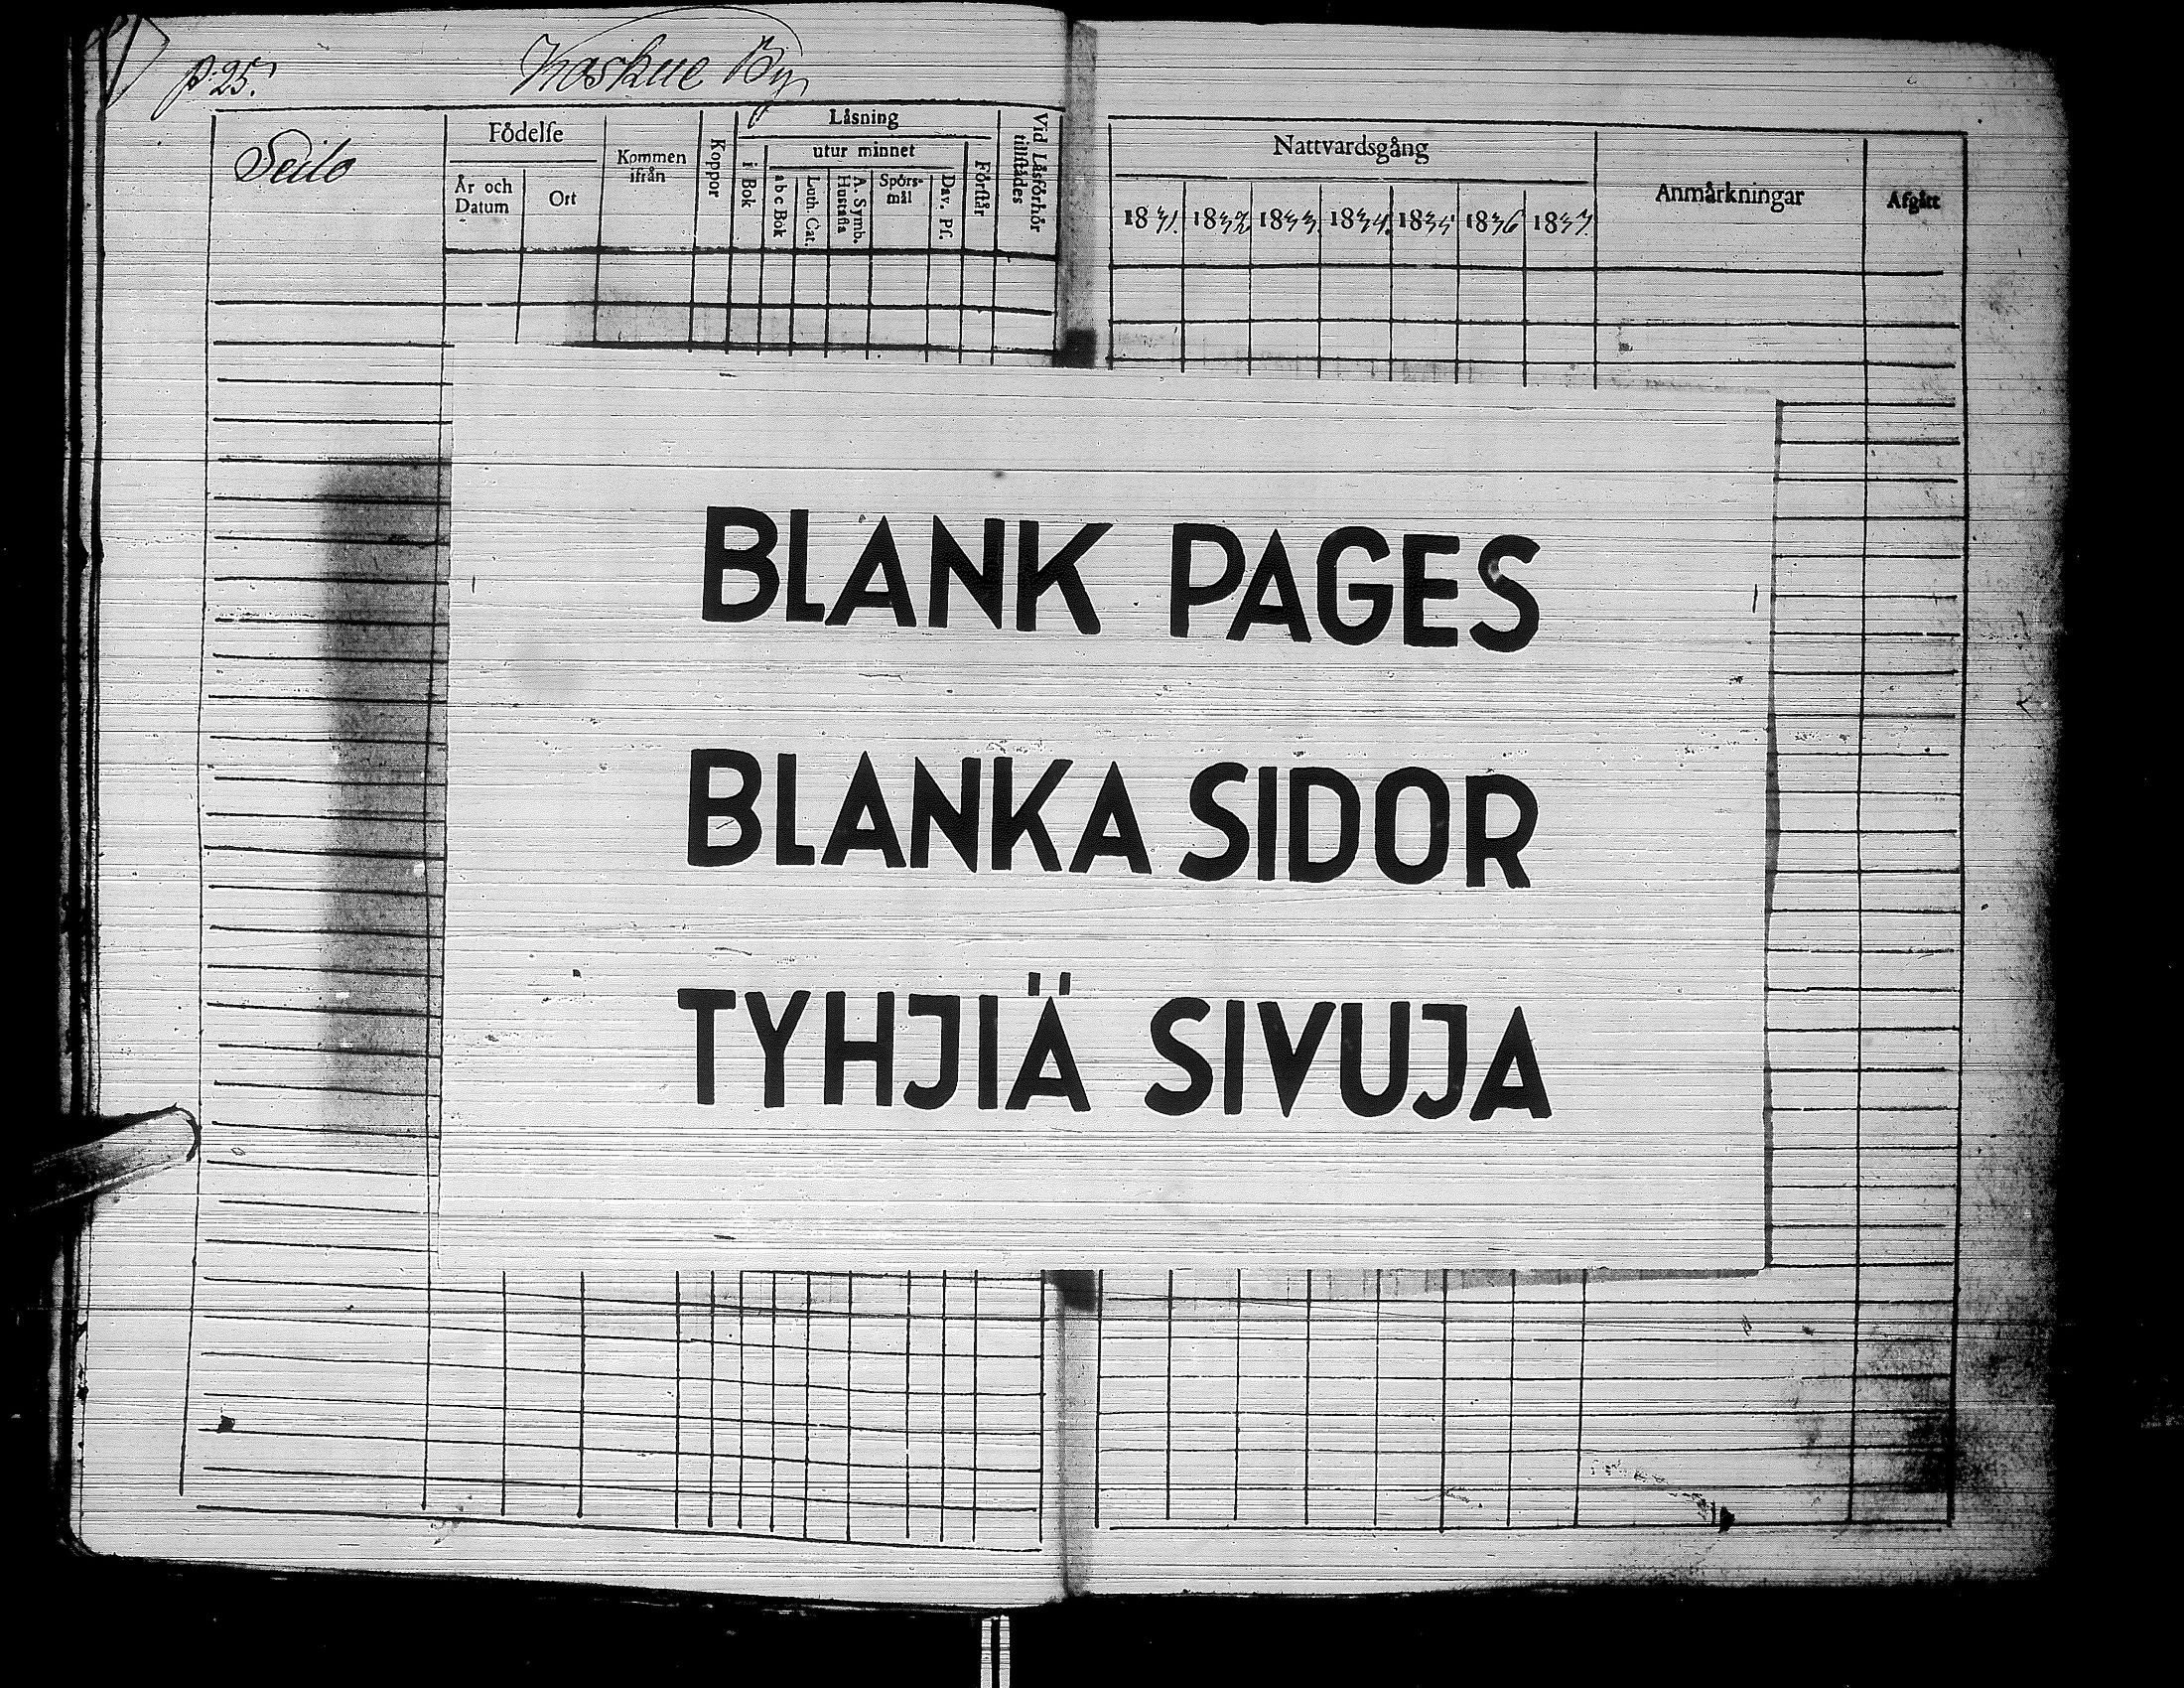 p. 25.
Koskue By
Seilo
Födelse
År och Datum
Ort
Kommen ifrån
Koppor
Läsning
i Bok
utur minnet
a b c Bok
Luth. Cat.
A. Symb. Hustafla
Spörs-mål
Dav. Ps.
Förstår
Vid Läsförhör tillstådes
Nattvardsgång
1831. 1832 1833 1834. 1835 1836 1837.
Anmärkningar
Afgått
BLANK PAGES
BLANKA SIDOR
TYHJIÄ SIVUJA